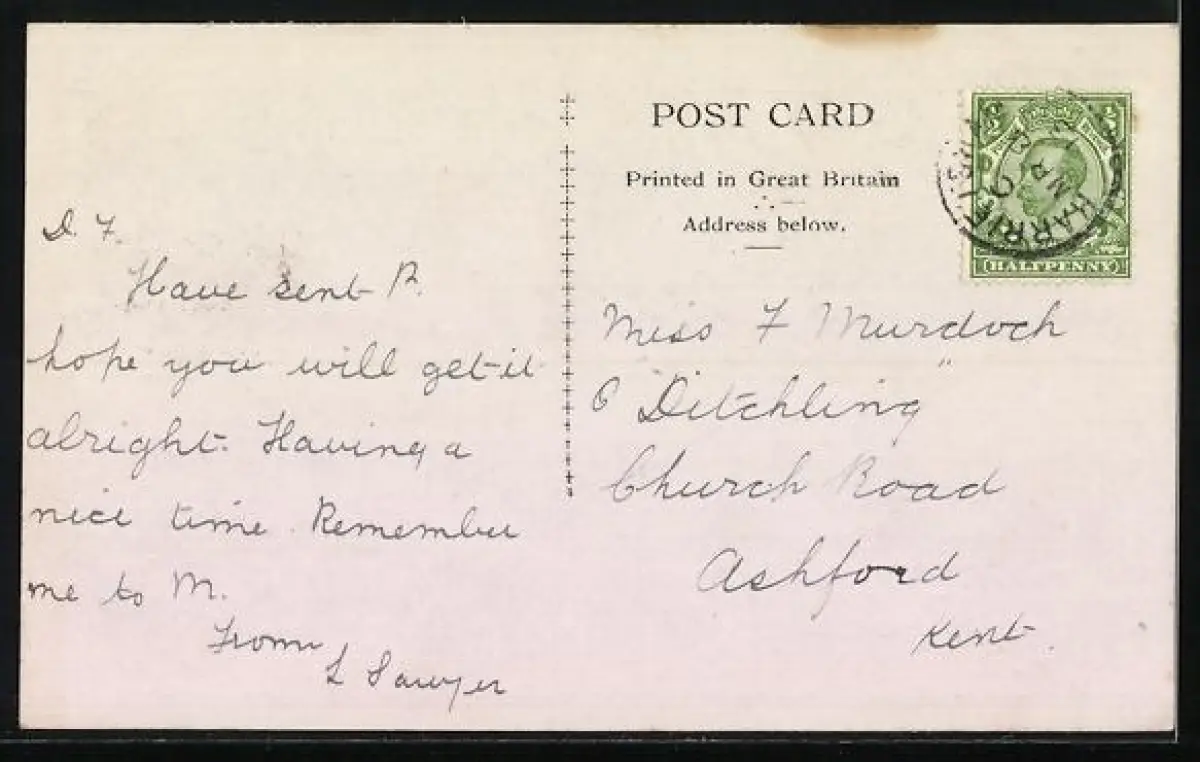 D. F.
Have sent R.
hope you will get it
alright. Having a
nice time. Remember
me to M.
From
L Sawyer
POST CARD
Printed in Great Britain
Address below.
HALFPENNY
Miss F Murdoch
6 "Ditchling"
Church Road
Ashford
Kent.